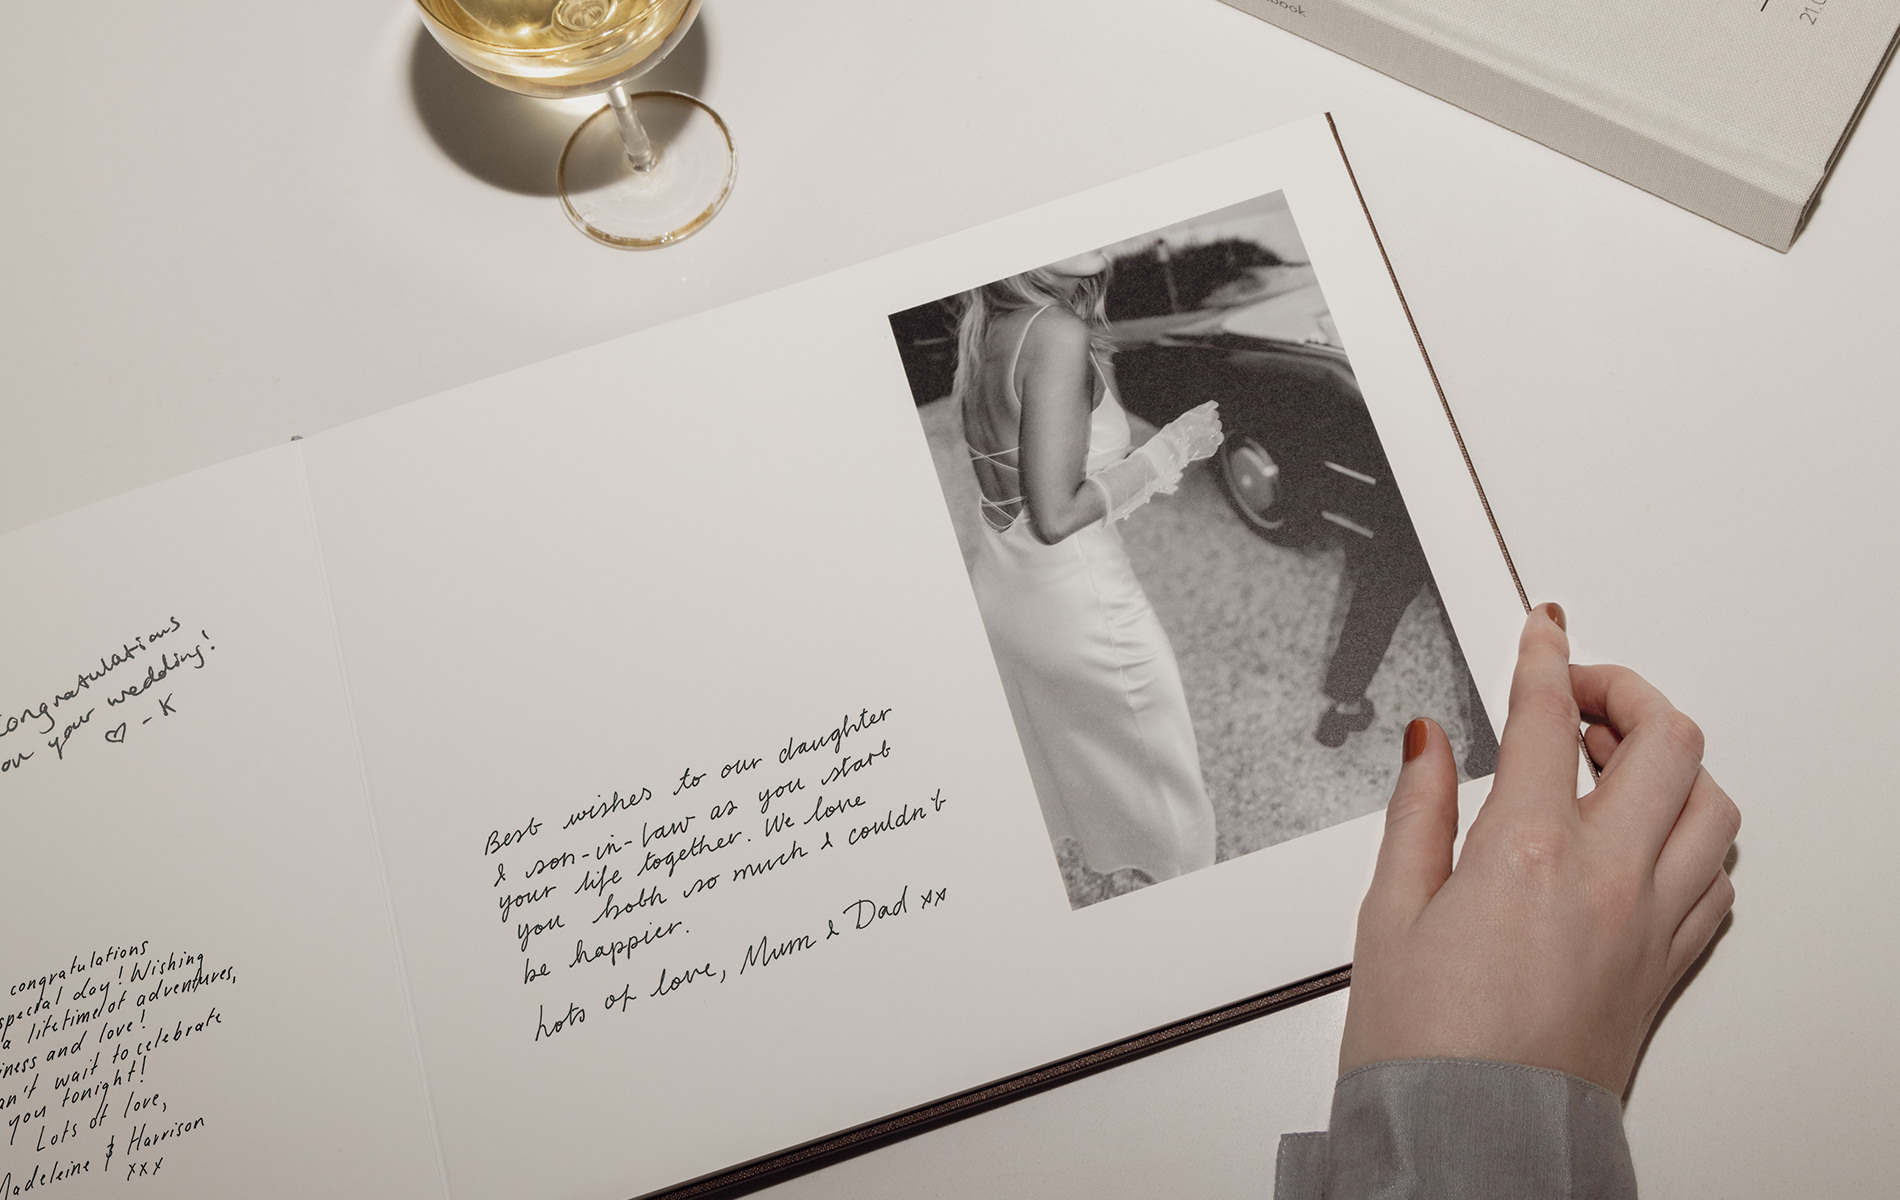 Congratulations
on your wedding!
♡ - K
congratulations
special day! Wishing
a lifetime of adventures,
and love!
wait to celebrate
you tonight!
Lots of love,
Madeleine & Harrison
xxx
Best wishes to our daughter
& son-in-law as you start
your life together. We love
you both so much & couldn't
be happier.
Lots of love, Mum & Dad xx